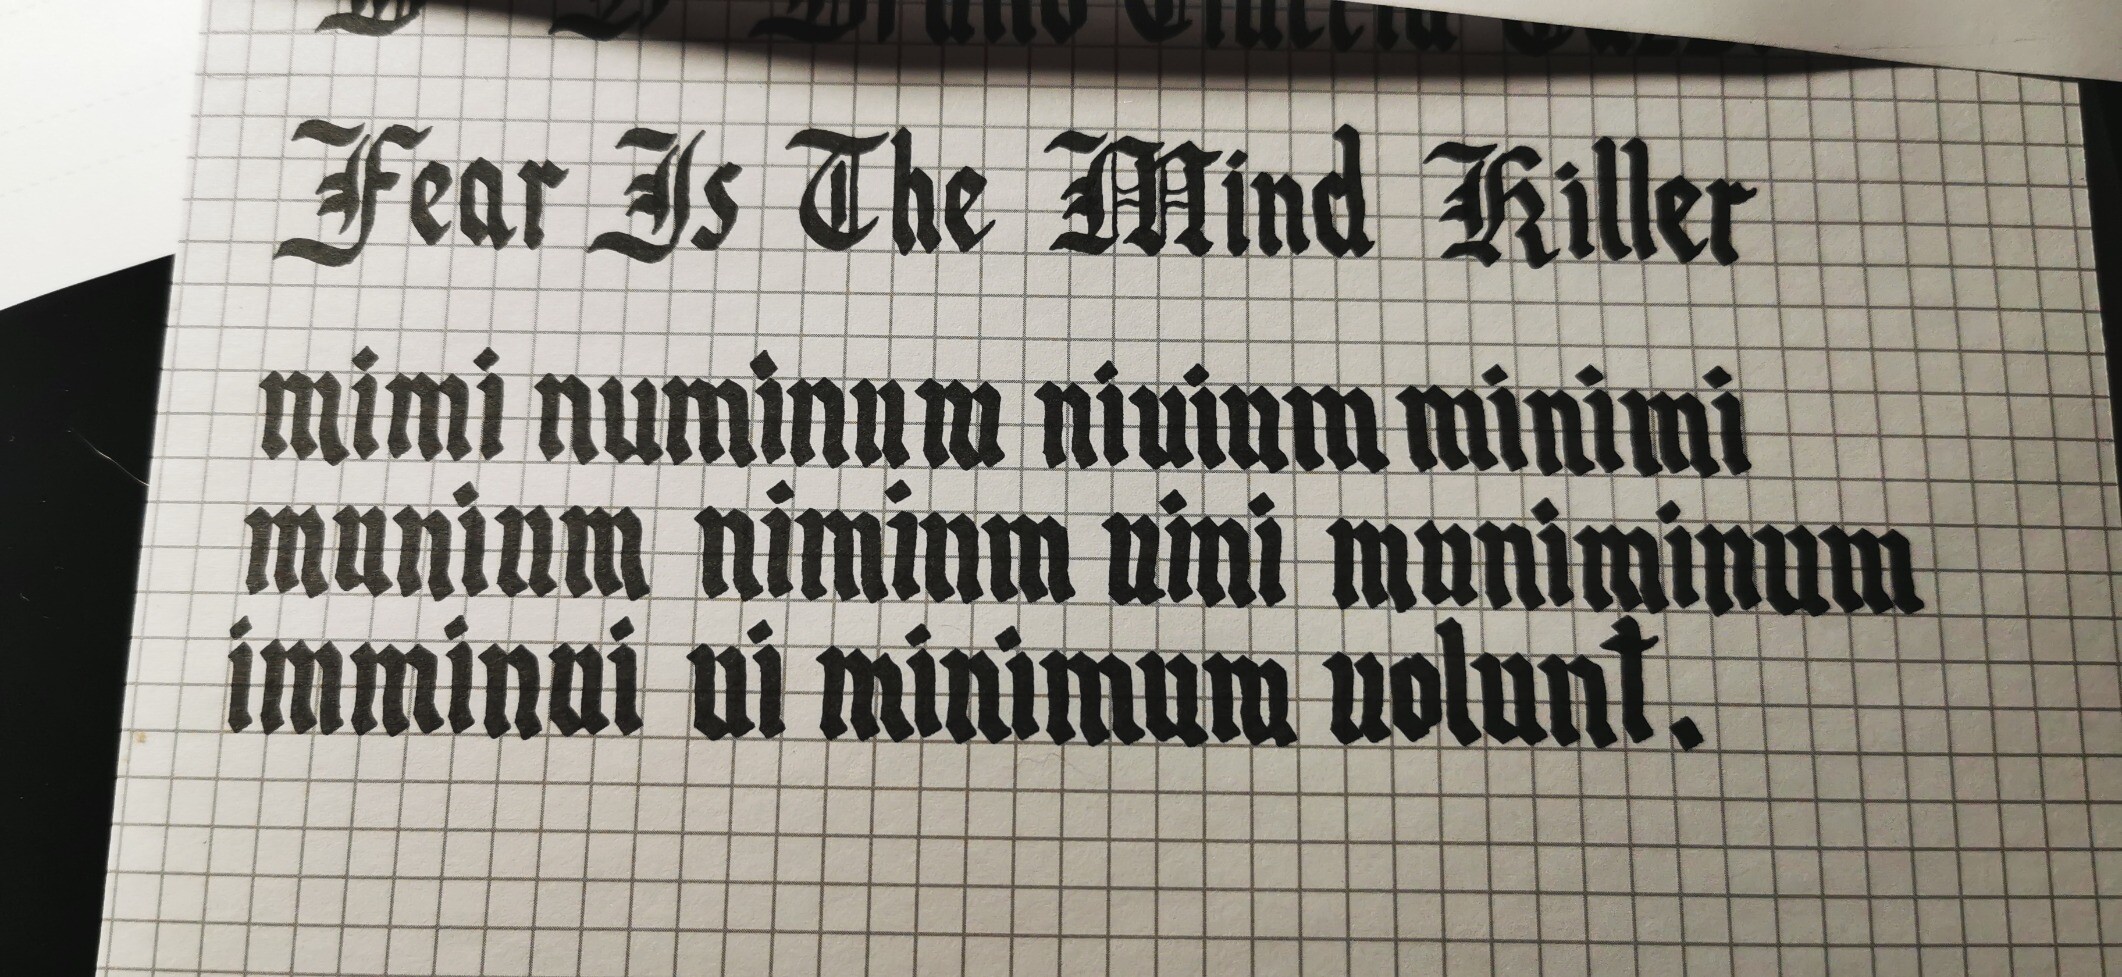 Fear Is The Mind Killer
mimi numinum niuium minimi
munium nimium uini muniminum
imminui ui minimum uolunt.